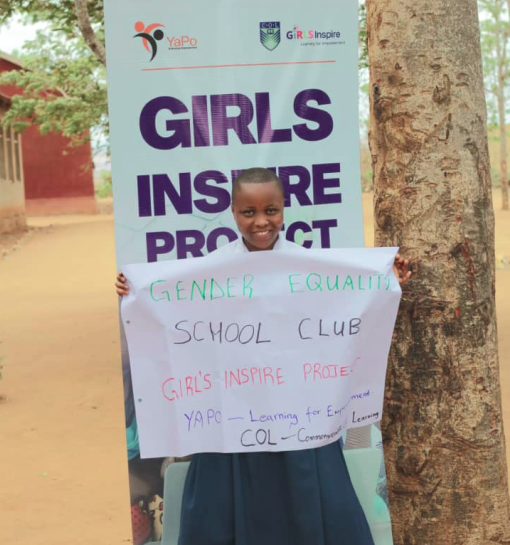 YaPo
COL
GIRLS Inspire
Learning for empowerment
GIRLS
INSPIRE
PROJECT
GENDER EQUALITY
SCHOOL CLUB
GIRL'S INSPIRE PROJECT
YAPO – Learning for Empowerment
COL – Commonwealth Learning